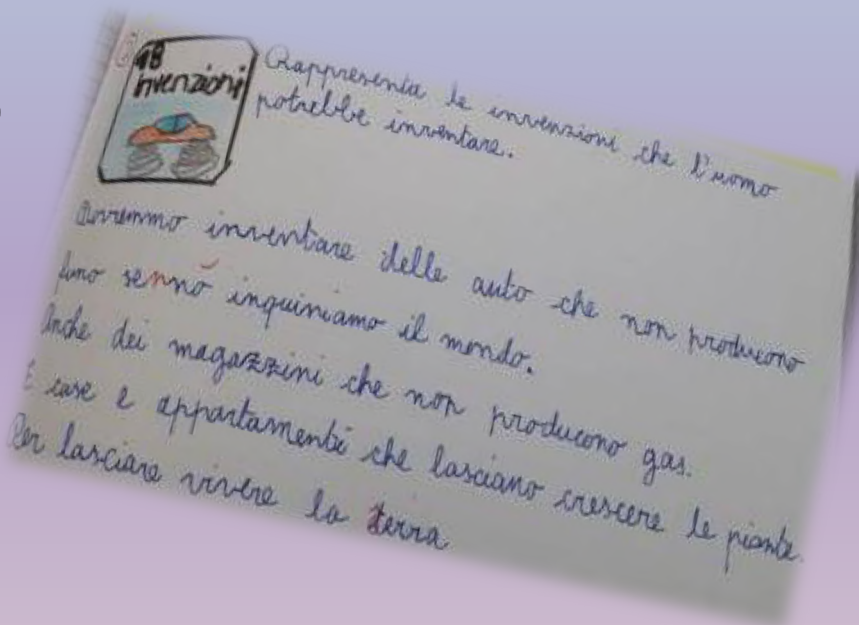 18
invenzioni
Rappresenta le invenzioni che l'uomo
potrebbe inventare.
Dovremmo inventare delle auto che non producono
fumo sennò inquiniamo il mondo.
Anche dei magazzini che non producono gas.
E case e appartamenti che lasciano crescere le piante.
Per lasciare vivere la terra